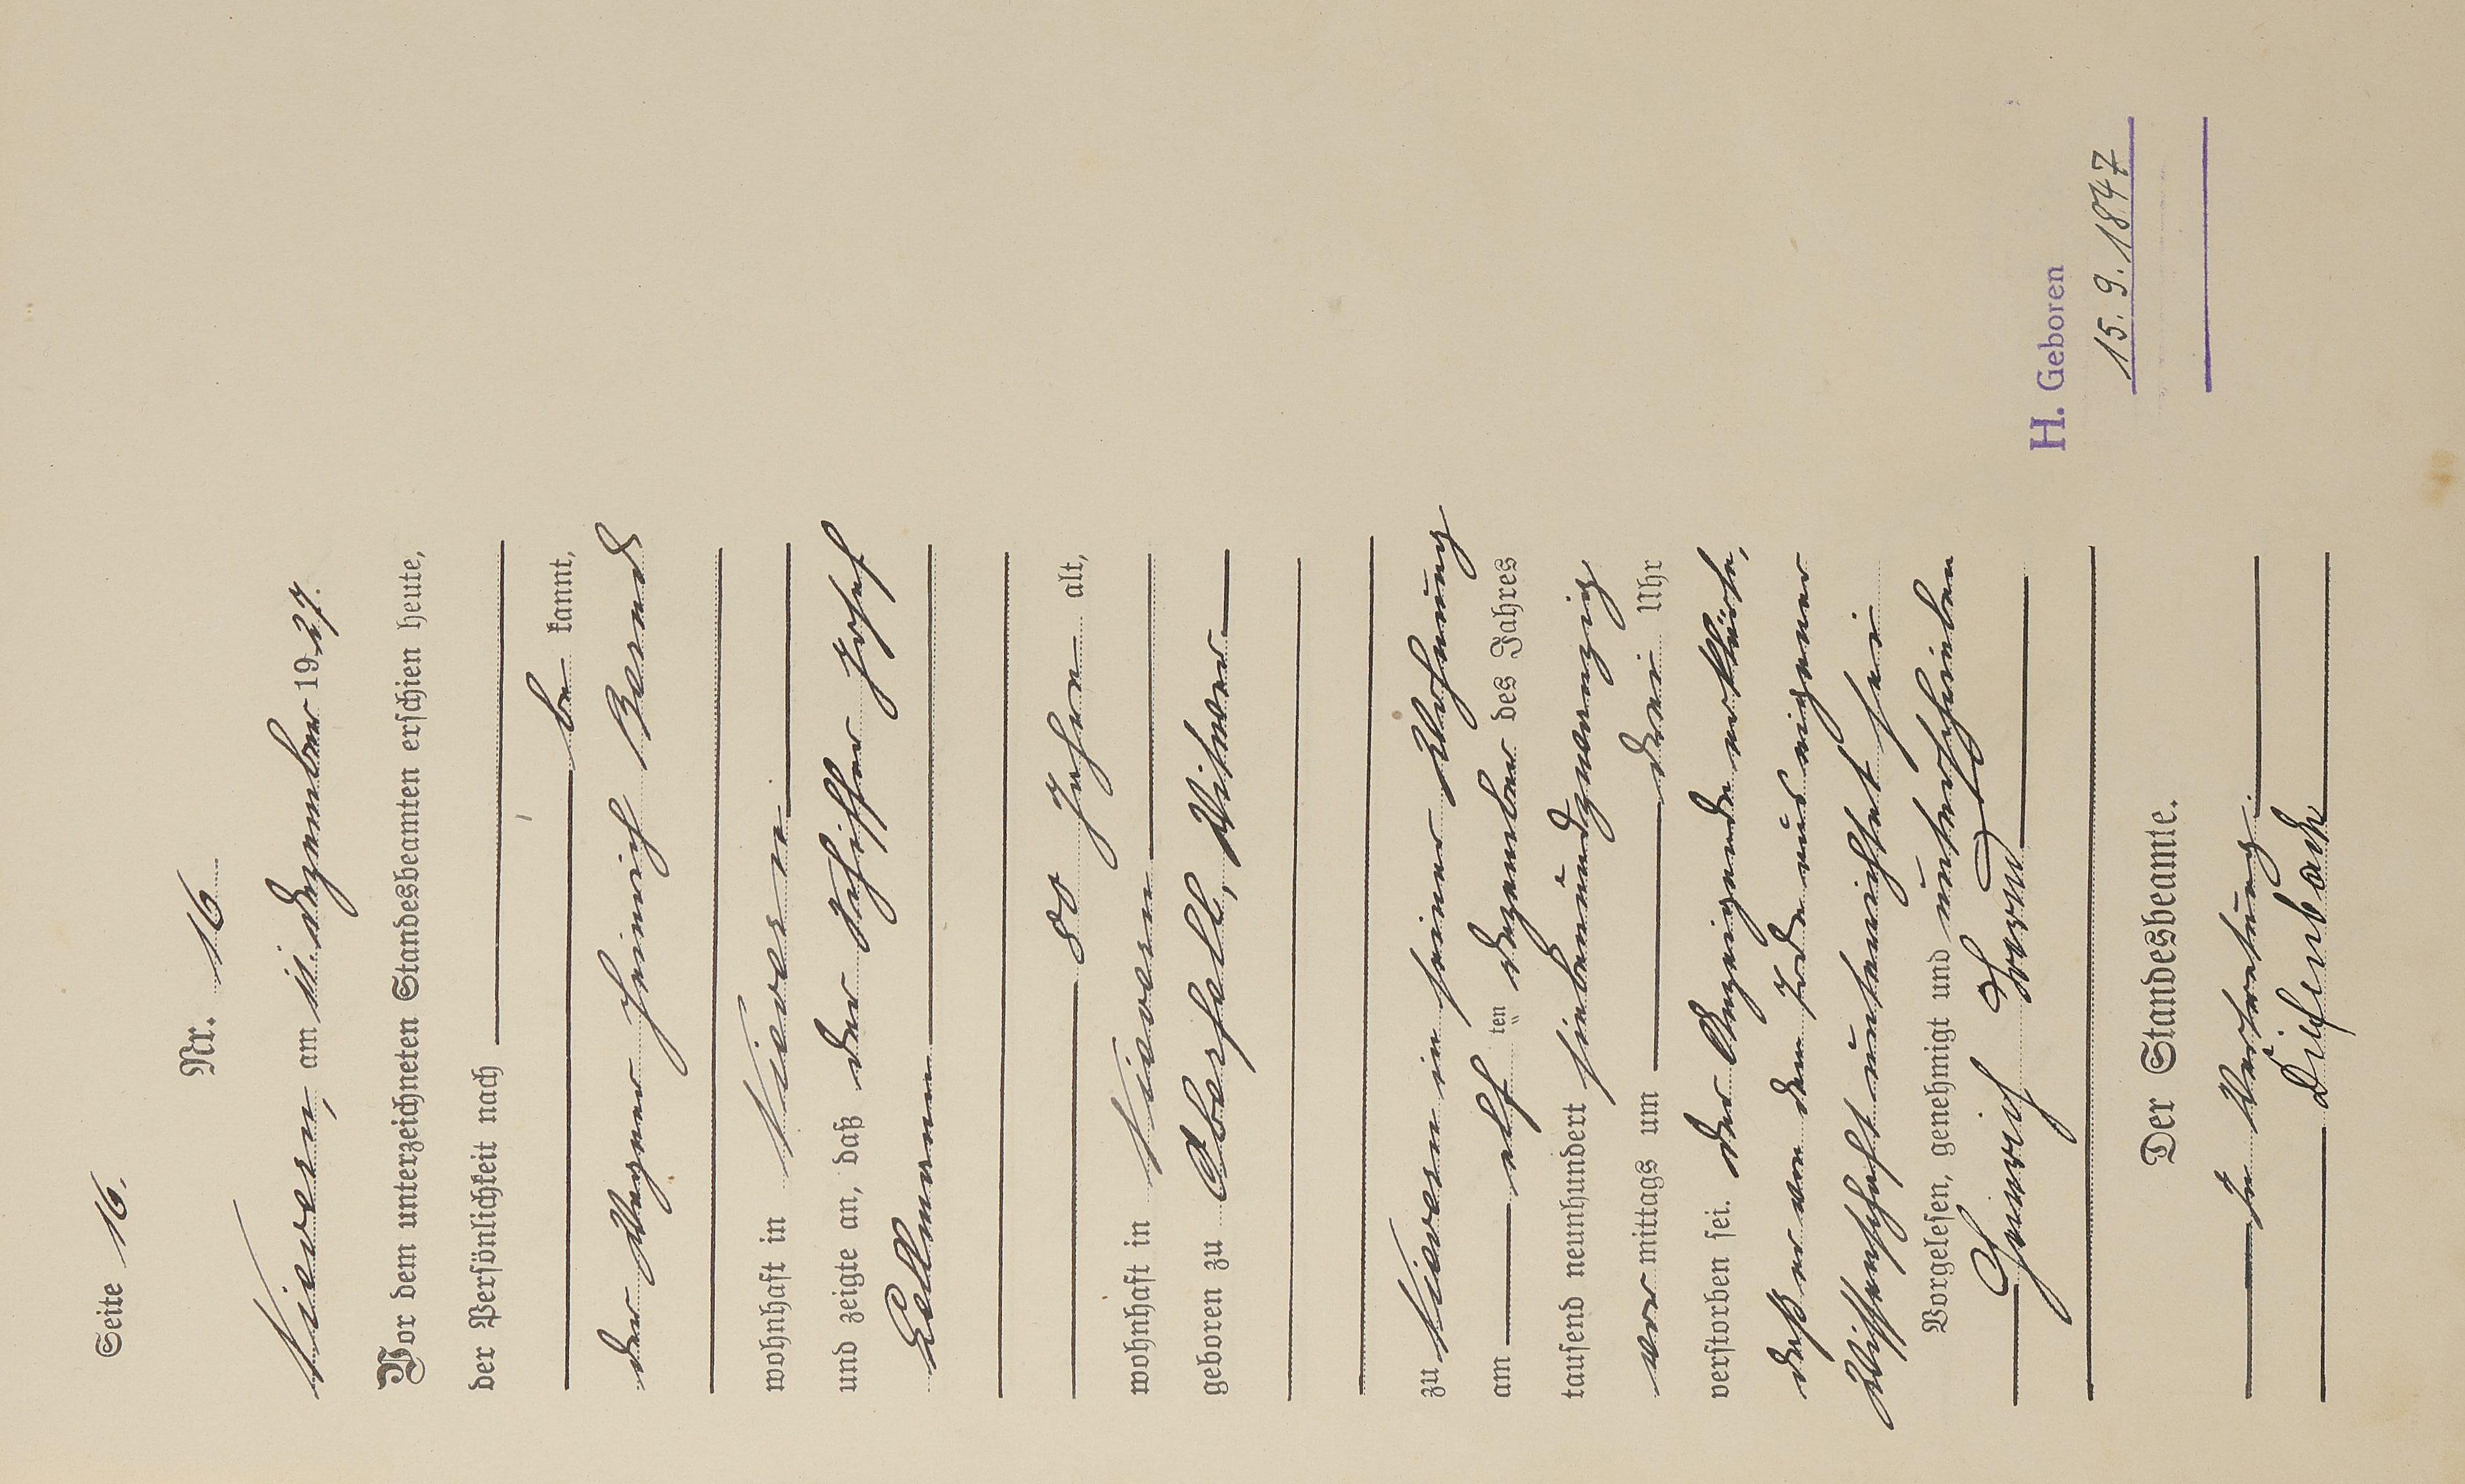 Seite 16.
Nr. 16
Nievern, am 11. Dezember 1927.
Vor dem unterzeichneten Standesbeamten erschien heute,
der Persönlichkeit nach
be kannt,
der Wagner Heinrich Bornd
wohnhaft in Nievern
und zeigte an, daß der Schiffer Josef
Lellmann
80 Jahre alt,
wohnhaft in Nievern
geboren zu Oberfell, Witwer.
zu Nievern in seiner Wohnung
am elf ten Dezember des Jahres
tausend neunhundert siebenundzwanzig
vor mittags um drei Uhr
verstorben sei. Der Anzeigende erklärte,
daß er von dem Tode aus eigener
Wissenschaft unterrichtet sei
Vorgelesen, genehmigt und unterschrieben
Heinrich
Der Standesbeamte.
In Vertretung.
Diefenbach
H. Geboren
15. 9. 1847